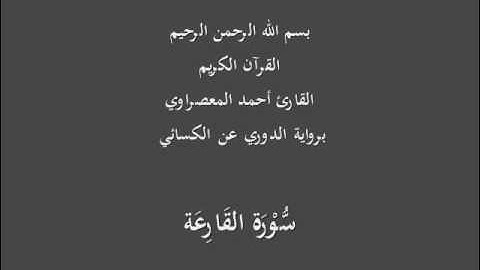 بسم الله الرحمن الرحيم
القرآن الكريم
القارئ أحمد المعصراوي
برواية الدوري عن الكسائي
سُّوْرَة القَارِعَة